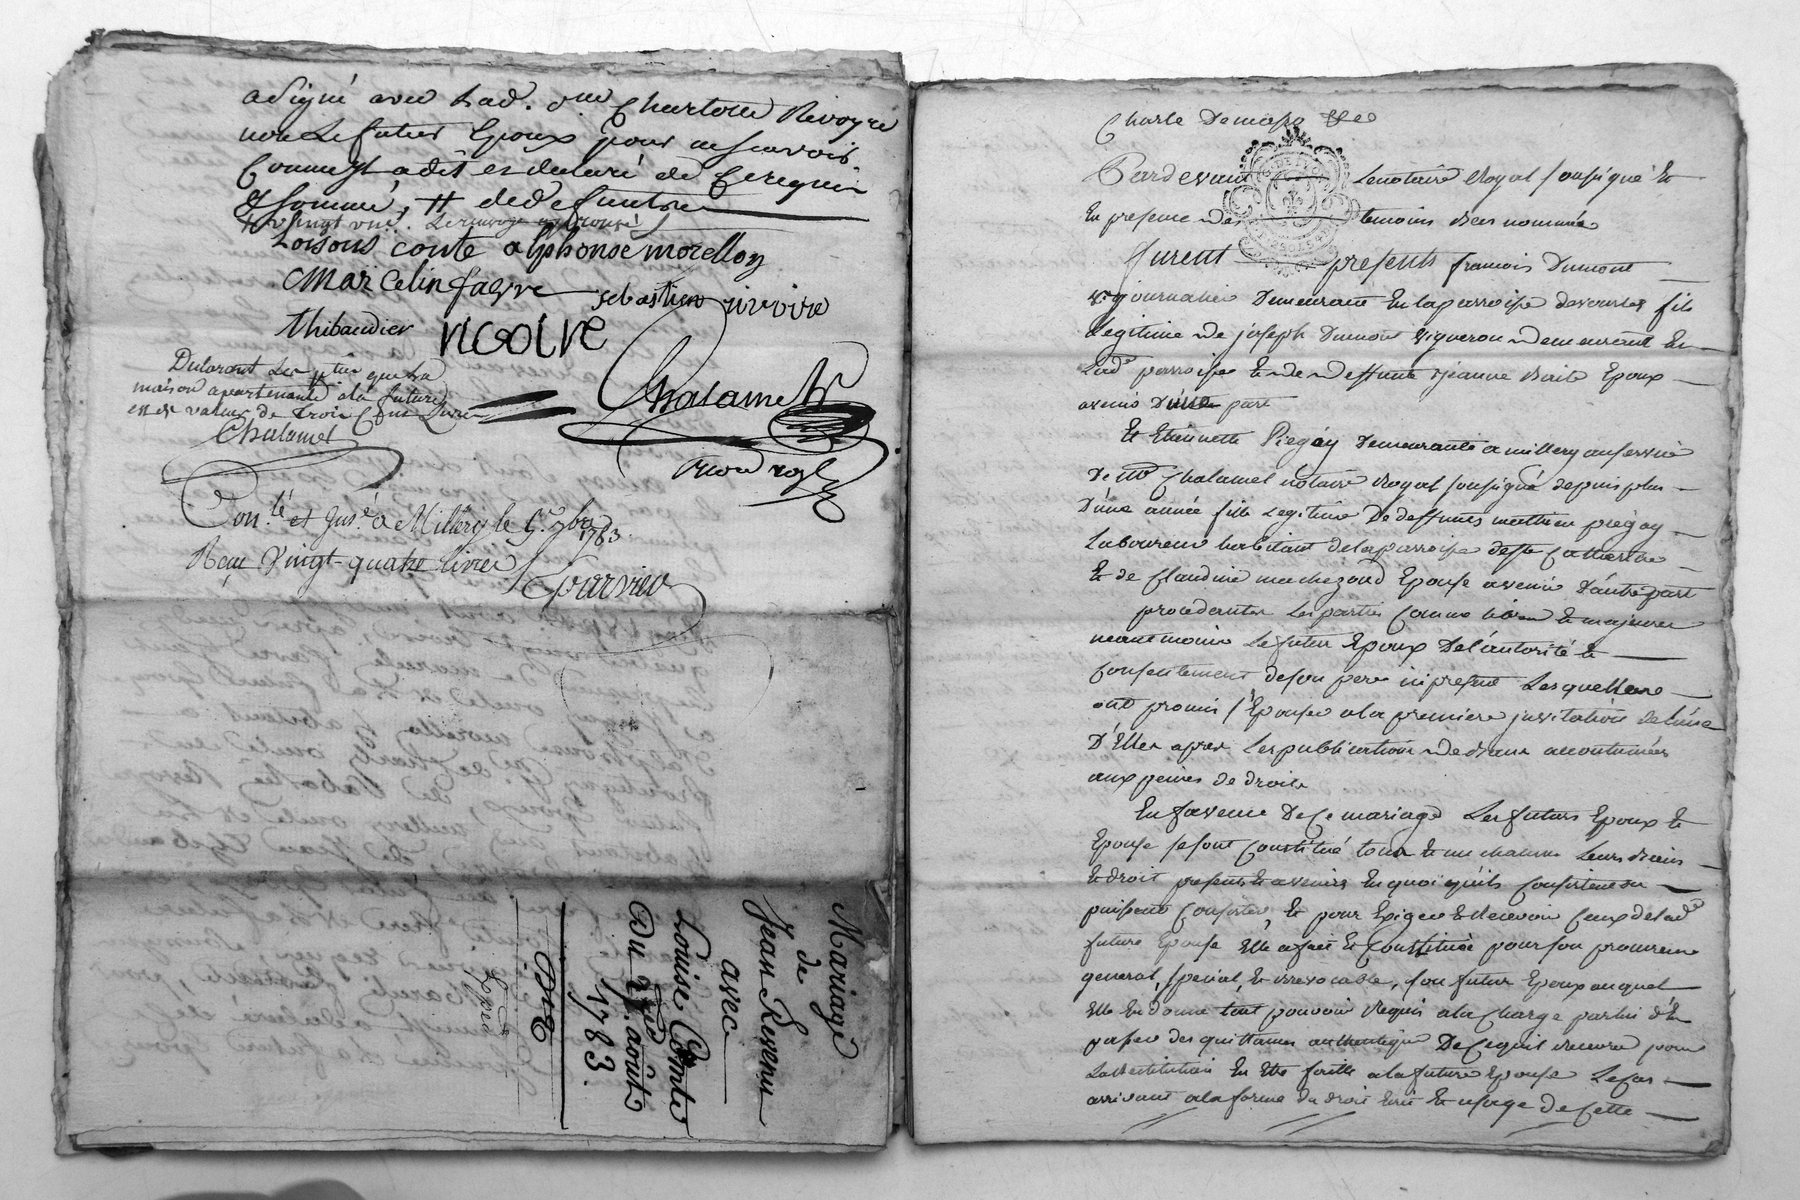 a signé avec lad. Charlotte Revoyre
non le futur Epoux pour ne scavoir
Comme il a dit et declaré de ce requis
& sommé,
Loisons conte alphonse morellon
Marcelin faeyre sebastien rivoire
Thibaudier
Chalamel
Dularont
maison apartenante a la future
est de valeur de trois Cent Livres
Chalamel
Con.lé et Insé a Millery le 5.e 7bre 1783.
Reçu Vingt-quatre livres
Mariage
de
Jean Revenu
avec
Louise Comte
Du août
1783
Charle
Pardevant Le notaire Royal soussigné Et
En presence des temoins bas nommés
furent presents francois Dumont
journalier Demeurant En la parroisse de vourles fils
Legitime de joseph Dumont vigneron demeurant En
Lad. parroisse Et de deffunte jeanne Epoux
avenir D'une part
Et Etiennette Piegay Demeurante a millery au service
De Me Chalamel notaire Royal soussigné depuis plus
D'une année fille Legitime De deffunts mathieu piegay
Laboureur habitant de la parroisse de Ste Catherine
Et de Claudine Epouse avenir D'autre part
procedantes Les parties Comme libres Et majeures
neantmoins Le futur Epoux De l'autorité Et
Consentement de son pere ici present Lesquelles
ont promis s'Epouser a la premiere invitation de l'une
D'Elles apres Les publications de bans accoutumées
aux peines de droit
En faveur De Ce mariage Les futurs Epoux Et
Epouse se sont Constitué tous Et un chacuns Leurs biens
Et droit presents Et avenirs En quoi qu'ils Consistent ou
puissent Consister, Et pour Exiger Et Recevoir Ceux de lad.
future Epouse Elle a fait Et Constitué pour son procureur
general, special, Et irrevocable, son futur Epoux auquel
Elle En donne tout pouvoir Requis a la Charge par lui d'En
passer des quittances authentiques De Ce qu'il Recevra pour
La Restitution En Etre faitte a la future Epouse Le Cas
arrivant a la forme du droit Ecrit Et usage de Cette